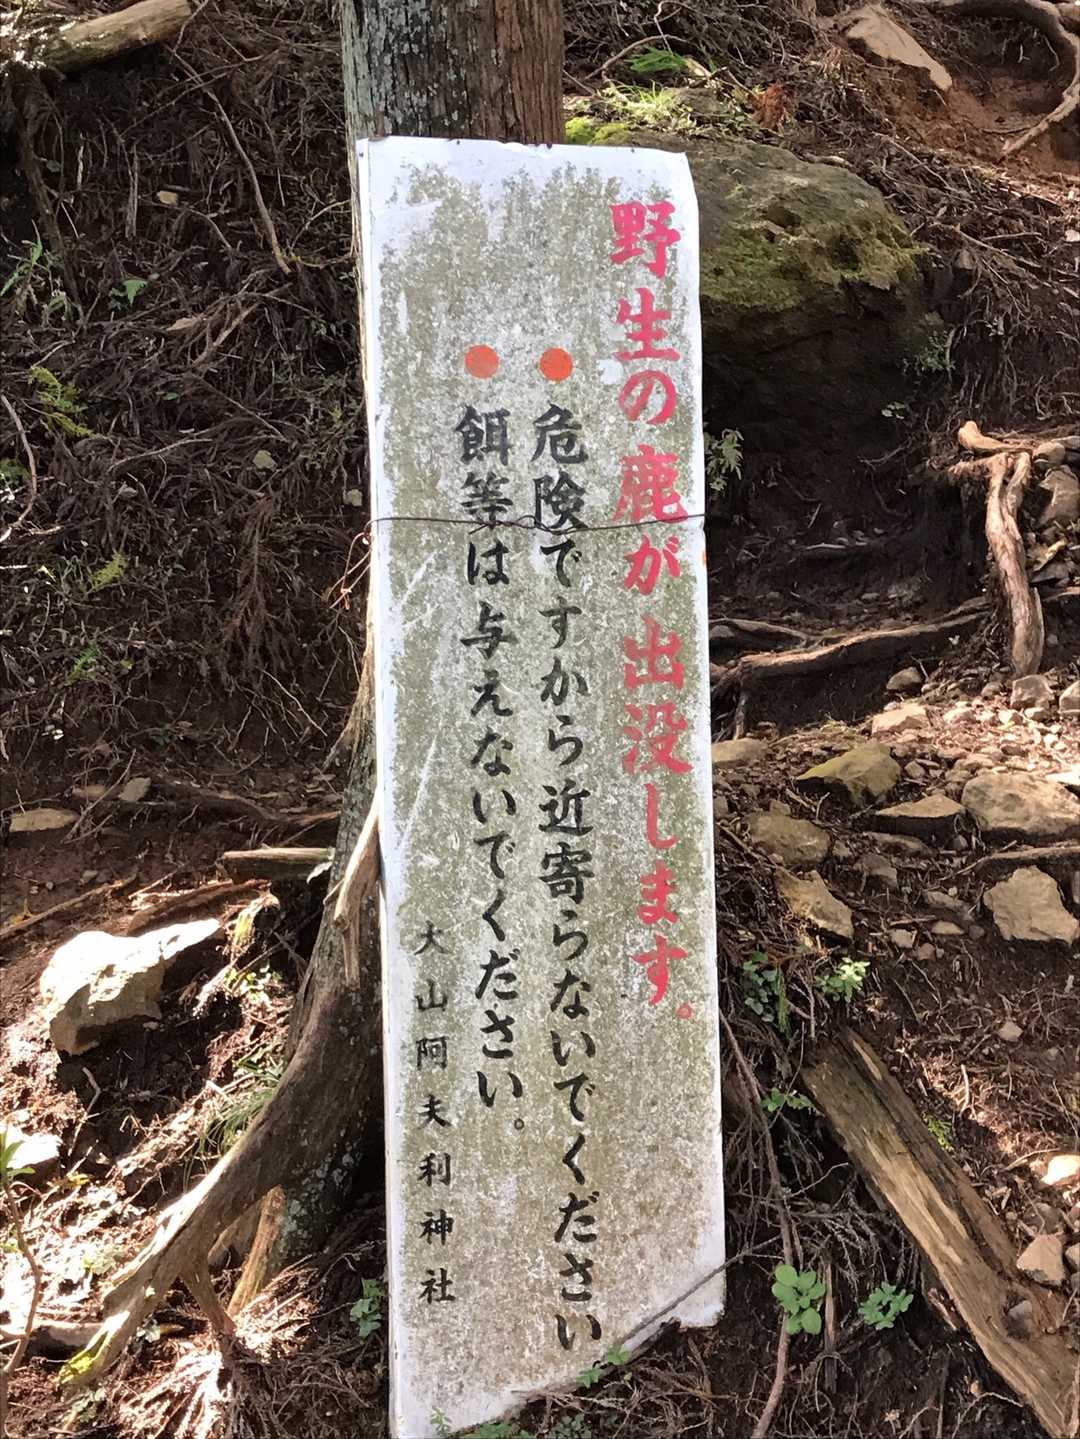 野生の鹿が出没します。
●危険ですから近寄らないでください
●餌等は与えないでください。
大山阿夫利神社